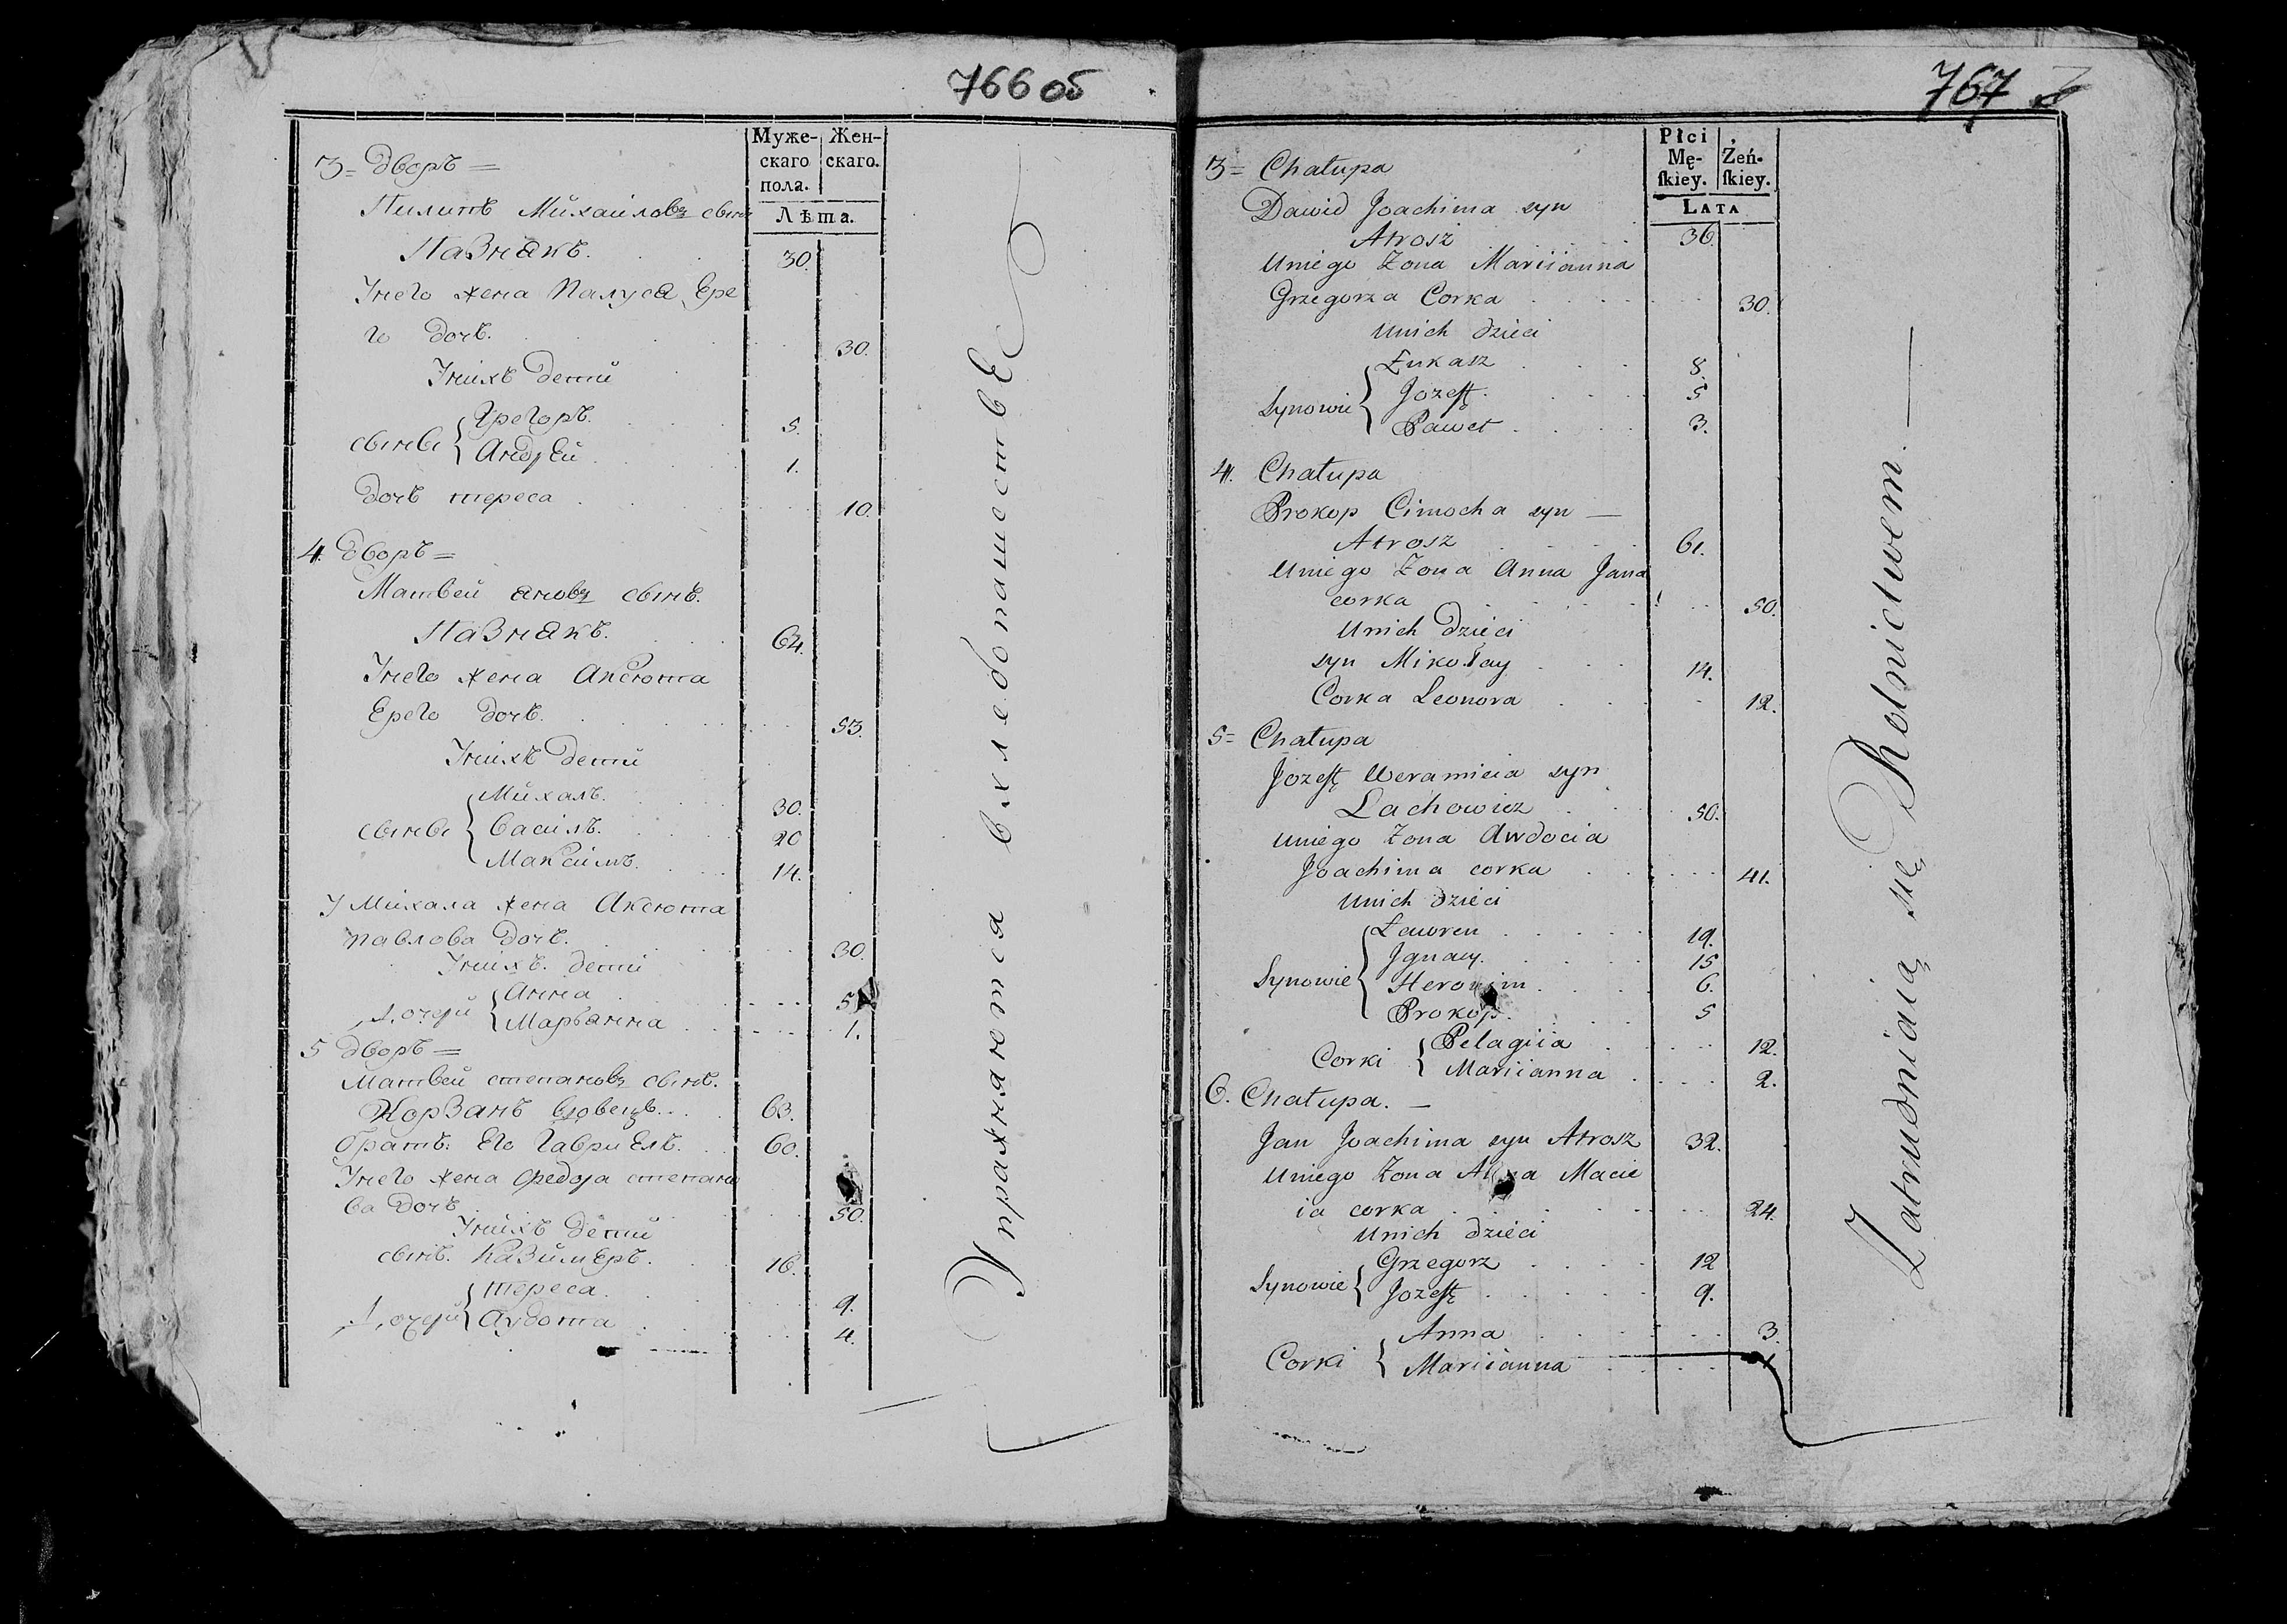 766 об
Муже-
скаго
пола.
Жен-
скаго.
Лѣта.
3 = дворъ =
Пилипъ Михаиловъ сынъ
Пазнякъ. 30.
Унего жена Палуся Ере
го дочъ. 30.
Унихъ дети
сыны { Грегоръ. 5.
Андрей 1.
дочъ тереса 10.
4. дворъ =
Матвей яновъ сынъ.
Пазнякъ. 64.
Унего жена Аксюта
Ерего дочъ. 53.
Унихъ дети
сыны { Михалъ. 30.
Василъ. 20
Максимъ. 14.
У Михала жена Аксюта
павлова дочъ. 30.
Унихъ. дети
дочери { Анна 5
Марьянна 1.
5 дворъ =
Матвей степановъ сынъ.
Корзанъ вдовецъ. 63.
братъ. Его Гавриелъ. 60.
Унего жена Федора степано
ва дочъ 50.
Унихъ дети
сынъ. Казимеръ. 16.
дочери { тереса. 9.
Аудота 4.
Упражняются вхлебопашествЕ
767
Płci
Mę-
ſkiey.
Żeń-
ſkiey.
LATA
3 = Chałupa
Dawid Joachima syn
Atrosz 36.
Uniego Żona Mariianna
Grzegorza Corka 30.
Unich dzieci
Synowie { Łukasz 8.
Jozeff. 5
Paweł 3.
4. Chałupa
Prokop Cimocha syn —
Atrosz 61.
Uniego Żona Anna Jana
corka 50.
Unich Dzieci
syn Mikołay 14.
Corka Leonora 12.
5 = Chałupa
Jozeff Weramieia syn
Lachowicz 50.
Uniego Żona Awdocia
Joachima corka 41.
Unich dzieci
Synowie { Ławren 19.
Jgnacy. 15
Heronim 6.
Prokop. 5
Corki { Pelagiia 12.
Mariianna 2.
6. Chałupa. —
Jan Joachima syn Atrosz 32.
Uniego Żona Anna Macie
ia corka 24.
Unich dzieci
Synowie { Grzegorz 12
Jozeff 9.
Corki { Anna 3.
Mariianna 1
Zatrudniaią się Rolnictwem. —